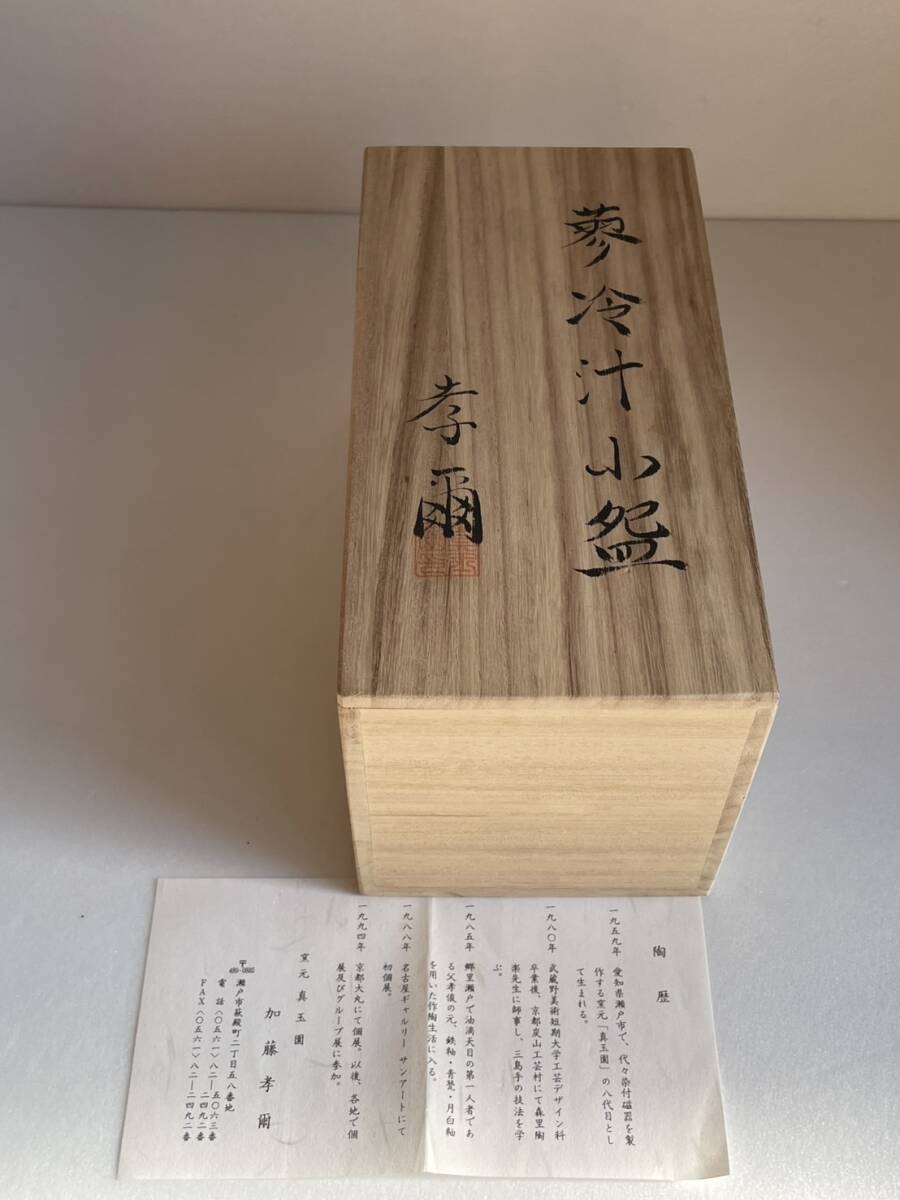 蓼冷汁小盌
孝爾
陶歴
一九五九年 愛知県瀬戸市で、代々染付磁器を製
作する窯元「真玉園」の八代目とし
て生まれる。
一九八〇年 武蔵野美術短期大学工芸デザイン科
卒業後、京都炭山工芸村にて森里陶
楽先生に師事し、三島手の技法を学
ぶ。
一九八五年 郷里瀬戸で油滴天目の第一人者であ
る父孝俊の元、鉄釉・青瓷・月白釉
を用いた作陶生活に入る。
一九八八年 名古屋ギャルリー サンアートにて
初個展。
一九九四年 京都大丸にて個展。以後、各地で個
展及びグループ展に参加。
窯元 真玉園
加藤孝爾
〒 瀬戸市萩殿町二丁目五八番地
電話〈〇五六一〉八二―五〇六三番
八二―二四九二番
FAX〈〇五六一〉八二―二四九二番